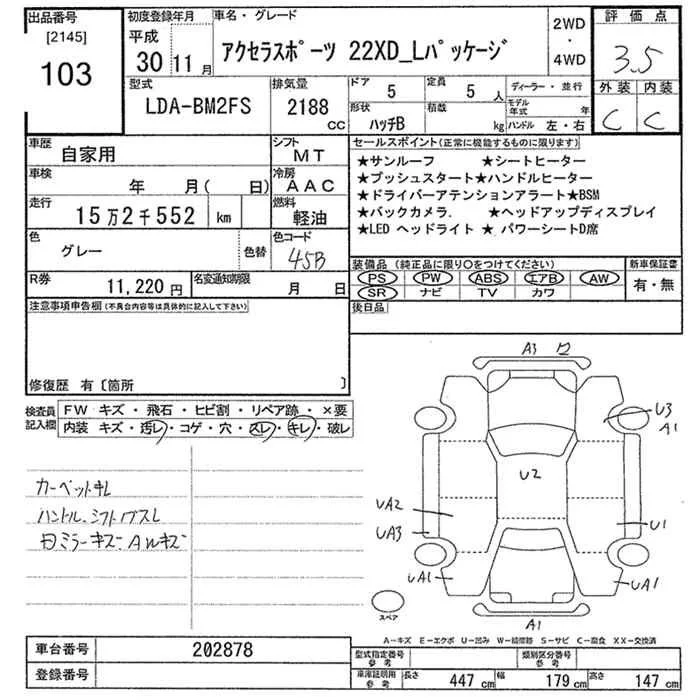 出品番号 初度登録年月 車名・グレード 2WD・4WD 評価点
[2145]
103
平成 30 11月
アクセラスポーツ 22XD_Lパッケージ
3.5
外装 内装
C C
型式 排気量 ドア 5 定員 5人 ディーラー・並行
LDA-BM2FS 2188 CC
形状 ハッチB 積載 kg モデル年式 年
ハンドル 左・右
車歴 自家用 シフト MT
車検 年 月( 日) 冷房 AAC
走行 15万2千552 km 燃料 軽油
色 グレー 色替 色コード 45B
R券 11,220円 名変通知期限 月 日
セールスポイント(正常に機能するものに限ります)
★サンルーフ ★シートヒーター
★プッシュスタート★ハンドルヒーター
★ドライバーアテンションアラート★BSM
★バックカメラ. ★ヘッドアップディスプレイ
★LED ヘッドライト ★ パワーシートD席
装備品 (純正品に限り〇をつけてください) 新車保証書
PS PW ABS エアB AW 有・無
SR ナビ TV カワ
後日品
注意事項申告欄(不具合内容等は具体的に記入して下さい)
修復歴 有〔箇所 〕
検査員記入欄 FW キズ・飛石・ヒビ割・リペア跡・×要
内装 キズ・汚レ・コゲ・穴・スレ・キレ・破レ
カーペットキレ
ハンドル、シフトノブスレ
AWキズ
A3
U3
A1
U2
UA2
UA3
U1
UA1
UA1
A1
スペア
A-キズ E-エクボ U-凹み W-補修跡 S-サビ C-腐食 XX-交換済
車台番号 202878
登録番号
型式指定番号 参考 類別区分番号 参考
車庫証明用 参考 長さ 447cm 幅 179cm 高さ 147cm